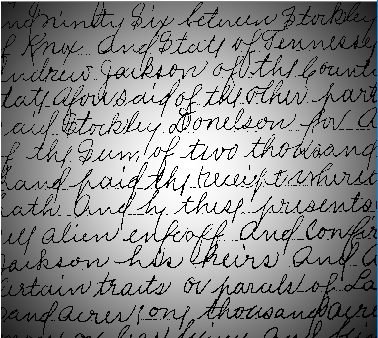 nd ninity Six between Stockley
f Knox and State of Tennessey
ndrew Jackson of the County
tate aforesaid of the other part
aid Stockley Donelson for
f the Sum of two thousand
hand paid the receipt where
hath And by these presents
ell alien enfeoff and confir
Jackson his heirs And
ertain traits or parals of La
sand acres, one thousand acre